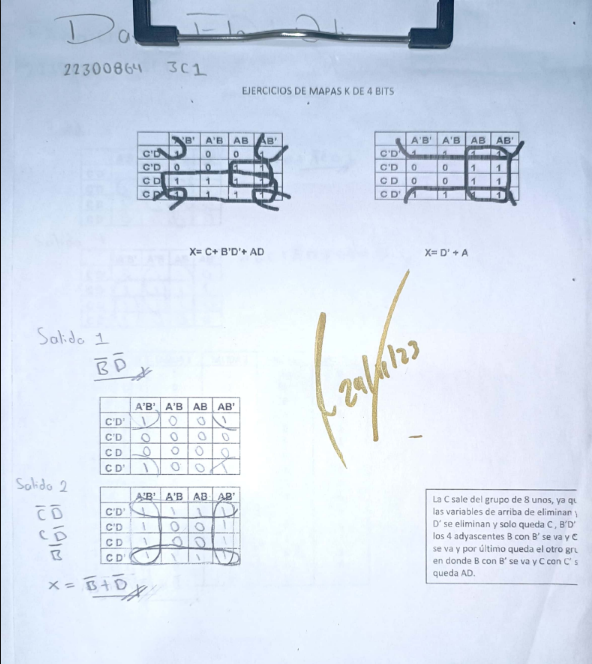 22300864 3C1
EJERCICIOS DE MAPAS K DE 4 BITS
A'B' A'B AB AB'
C'D' 1 0 0 1
C'D 0 0 1 1
C D 1 1 1 1
C D' 1 1 1 1
X= C+ B'D'+ AD
A'B' A'B AB AB'
C'D' 1 1 1 1
C'D 0 0 1 1
C D 0 0 1 1
C D' 1 1 1 1
X= D' + A
Salida 1
B̅ D̅
29/11/23
A'B' A'B AB AB'
C'D' 1 0 0 1
C'D 0 0 0 0
C D 0 0 0 0
C D' 1 0 0 1
Salida 2
C̅ D̅
C D̅
B̅
X = B̅ + D̅
A'B' A'B AB AB'
C'D' 1 1 1 1
C'D 1 0 0 1
C D 1 0 0 1
C D' 1 1 1 1
La C sale del grupo de 8 unos, ya qu
las variables de arriba de eliminan y
D' se eliminan y solo queda C , B'D'
los 4 adyascentes B con B' se va y C
se va y por último queda el otro gru
en donde B con B' se va y C con C' s
queda AD.